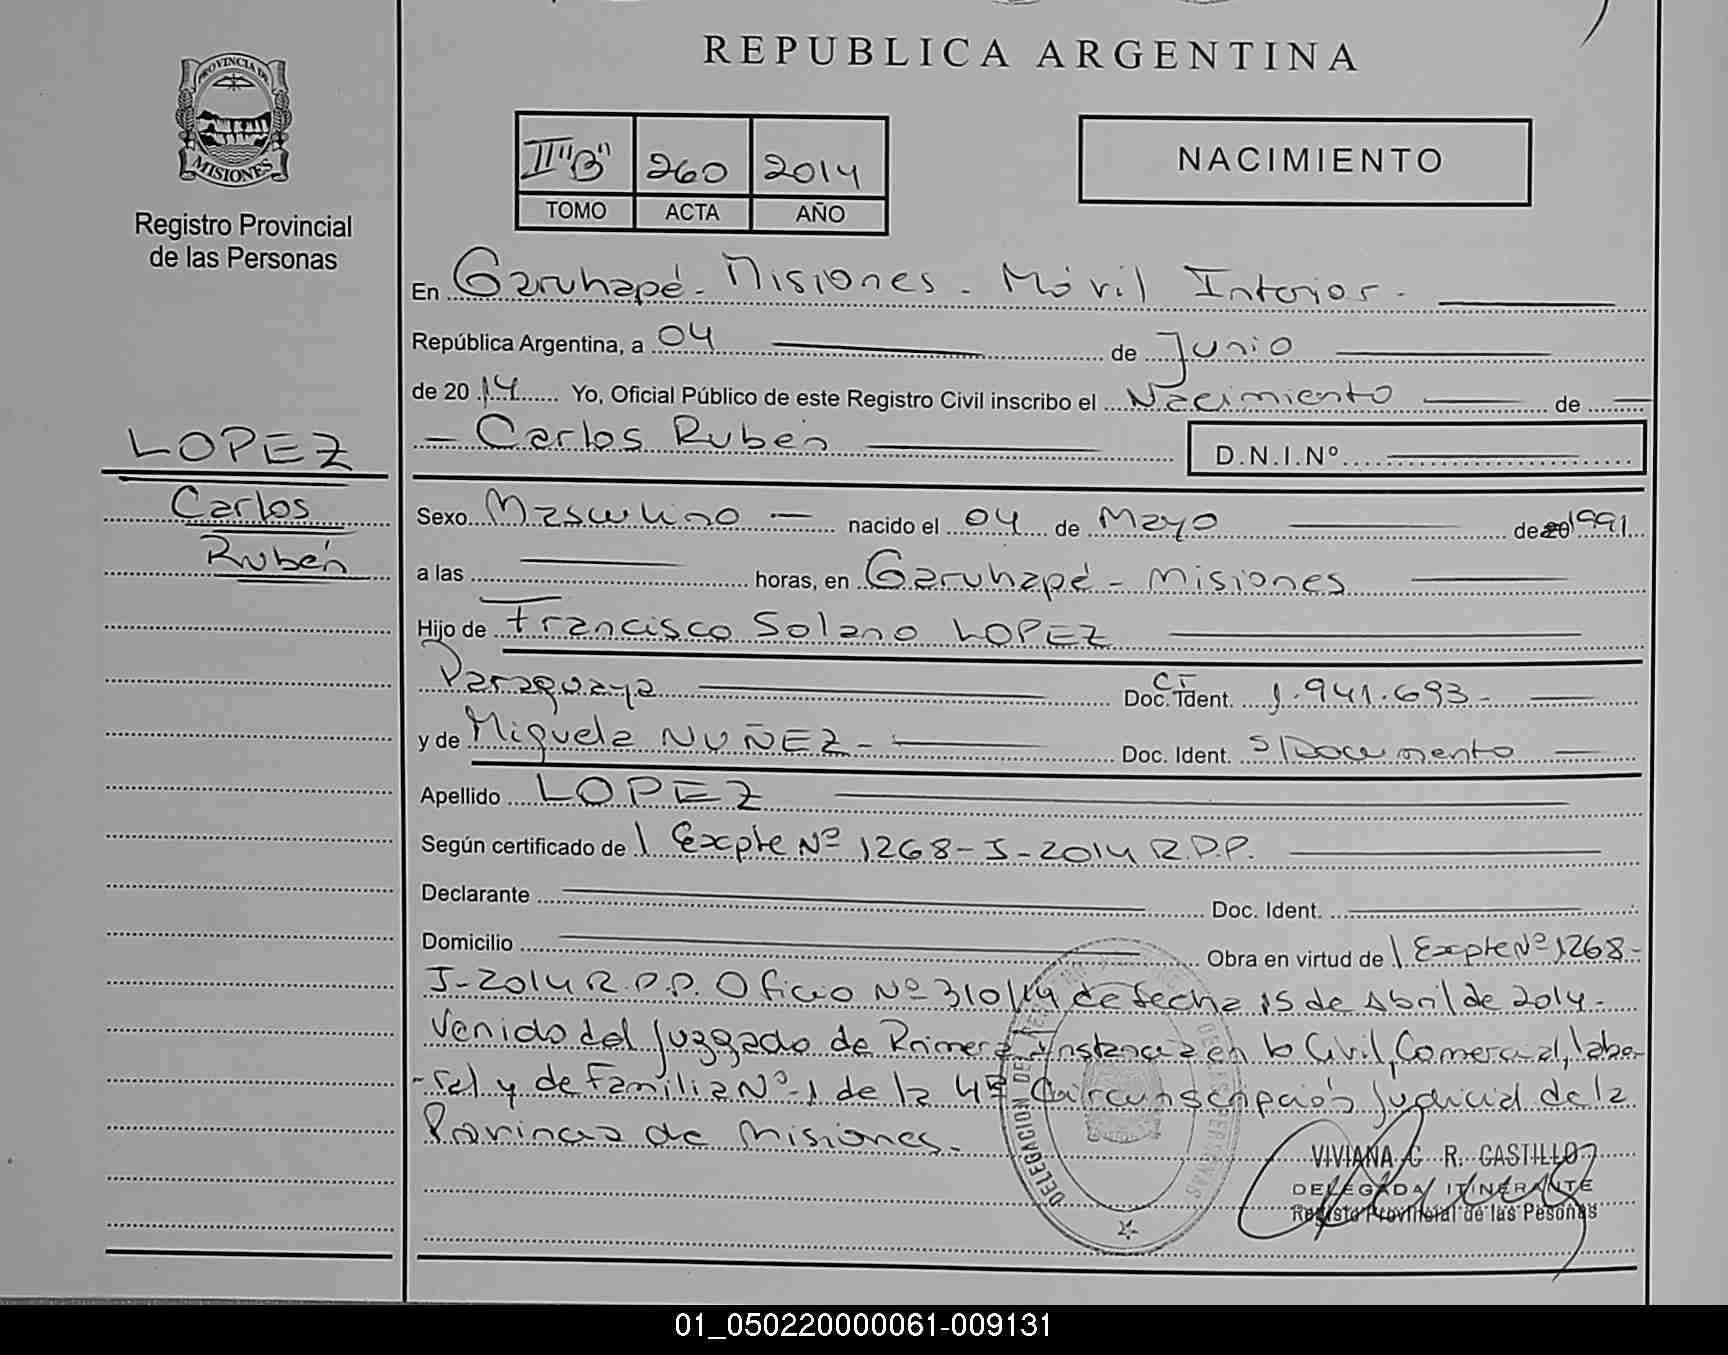 REPUBLICA ARGENTINA
PROVINCIA DE
MISIONES
Registro Provincial
de las Personas
II "B" 260 2014
TOMO ACTA AÑO
NACIMIENTO
En Garuhapé - Misiones - Móvil Interior -
República Argentina, a 04 de Junio
de 2014 Yo, Oficial Público de este Registro Civil inscribo el Nacimiento de
Carlos Rubén D.N.I.Nº
LOPEZ
Carlos
Rubén
Sexo Masculino nacido el 04 de Mayo de 20 1991
a las horas, en Garuhapé - Misiones
Hijo de Francisco Solano LOPEZ
Paraguaya CI Doc. Ident. 1.941.693-
y de Miguela NUÑEZ - Doc. Ident. S/Documento
Apellido LOPEZ
Según certificado de | Expte Nº 1268-J-2014 R.P.P.
Declarante Doc. Ident.
Domicilio Obra en virtud de | Expte Nº 1268-
J-2014 R.P.P. Oficio Nº 310/14 de fecha 15 de Abril de 2014-
Venido del Juzgado de Primera Instancia en lo Civil, Comercial, labo-
-ral y de Familia Nº-1 de la 4ª Circunscripción Judicial de la
Provincia de Misiones.-
DELEGACION DE
VIVIANA C. R. CASTILLO
DELEGADA ITINERANTE
Registo Provincial de las Pesonas
01_050220000061-009131